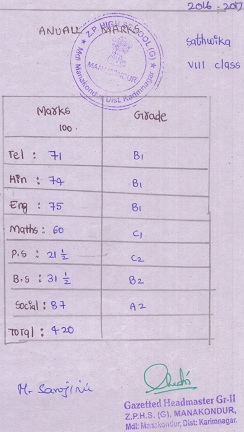 2016-2017
ANUALL MARKS
Z.P HIGH SCHOOL (G)
MANAKONDUR
Mdl: Manakondur, Dist: Karimnagar.
sathwika
VIII class
Marks 100. Grade
Tel : 71 B1
Hin : 74 B1
Eng : 75 B1
Maths : 60 C1
P.S : 21 1/2 C2
B.S : 31 1/2 B2
Social : 87 A2
Total : 420
Gazetted Headmaster Gr-II
Z.P.H.S. (G), MANAKONDUR,
Mdl: Manakondur, Dist: Karimnagar.